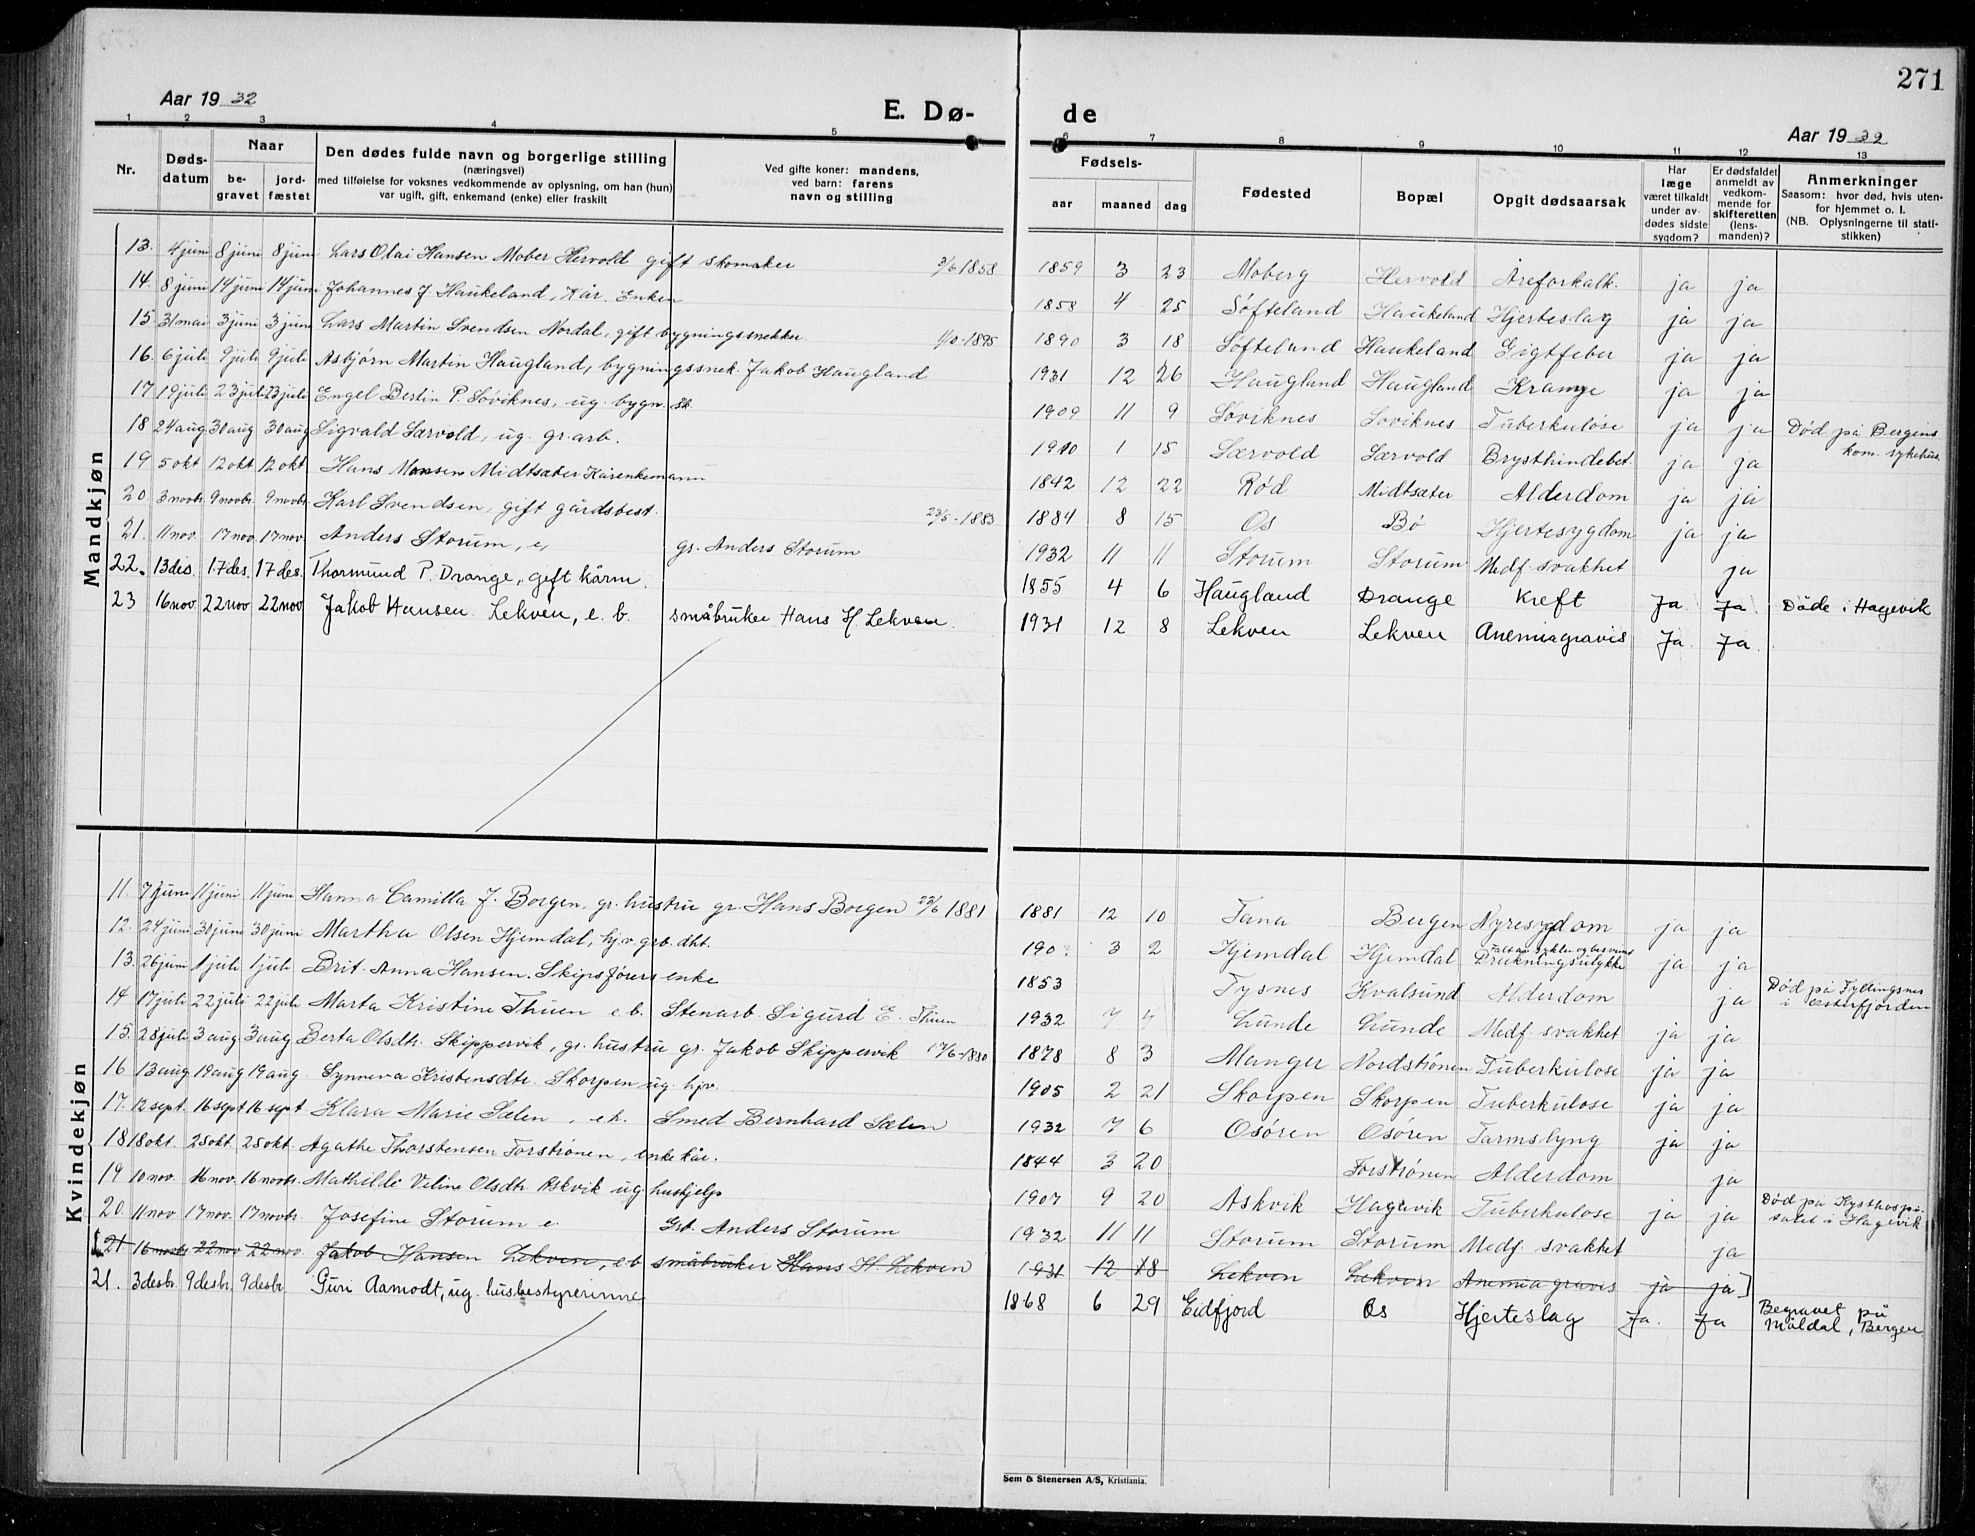 271
Aar 1932
E. Dø-
de
Aar 1932
1 2 3 4 5 6 7 8 9 10 11 12 13
Nr.
Døds-
datum
Naar
be-
gravet
jord-
fæstet
Den dødes fulde navn og borgerlige stilling
(næringsvei)
med tilføielse for voksnes vedkommende av oplysning, om han (hun)
var ugift, gift, enkemand (enke) eller fraskilt
Ved gifte koner: mandens,
ved barn: farens
navn og stilling
Fødsels-
aar maaned dag
Fødested
Bopæl
Opgit dødsaarsak
Har
læge
været tilkaldt
under av-
dødes sidste
sygdom?
Er dødsfaldet
anmeldt av
vedkom-
mende for
skifteretten
(lens-
manden)?
Anmerkninger
Saasom: hvor død, hvis uten-
for hjemmet o. l.
(NB. Oplysningerne til stati-
stikken)
Mandkjøn
13. 4 juni 8 juni 8 juni Lars Olai Hansen Mober Hervold gift skomaker 3/6 1858 1859 3 23 Moberg Hervold Åreforkalk. ja ja
14. 8 juni 14 juni 14 juni Johannes J. Haukeland, Kår. Enken 1858 4 25 Søfteland Haukeland Hjerteslag ja ja
15 31 mai 3 juni 3 juni Lars Martin Svendsen Nordal, gift bygningssnekker 1/10-1895 1890 3 18 Søfteland Haukeland Gigtfeber ja ja
16. 6 juli 9 juli 9 juli Asbjørn Martin Haugland, bygningssnek. Jakob Haugland 1931 12 26 Haugland Haugland Krampe ja ja
17 19 juli 23 juli 23 juli Engel Bertin P. Søviknes, ug. bygn. sn. 1909 11 9 Søviknes Søviknes Tuberkulose ja ja Død på Bergens
kom. sykehus.
18 24 aug 30 aug 30 aug Sigvald Særvold, ug. gr. arb. 1910 1 15 Særvold Særvold Brysthindebet. ja ja
19 5 okt 12 okt 12 okt Hans Monsen Midtsæter Kårenkemann 1842 12 22 Rød Midtsæter Alderdom ja ja
20 3 novbr. 9 novbr. 9 novbr. Karl Svendsen, gift gårdsbest. 23/5-1883 1884 8 15 Os Bø Hjertesygdom ja ja
21. 11 nov. 17 nov. 17 nov. Anders Storum, e, gr. Anders Storum 1932 11 11 Storum Storum Medf. svakhet ja
22. 13 des. 17 des. 17 des. Thormund P. Drange, gift kårm. 1855 4 6 Haugland Drange Kreft Ja. Ja Døde i Hagevik
23 16 nov. 22 nov 22 nov. Jakob Hansen Lekven, e. b. småbruker Hans H. Lekven. 1931 12 8 Lekven Lekven Anemia gravis Ja. Ja.
Kvindekjøn
11. 7 juni 11 juni 11 juni Hanna Camilla J. Borgen, gr. hustru gr. Hans Borgen 23/6 1881 1881 12 10 Fana Bergen Nyresygdom ja ja
12. 24 juni 30 juni 30 juni Martha Olsen Hjemdal, hjv. grb. dht. 190 3 2 Hjemdal Hjemdal Drukningsulykke ja ja
13. 26 juni 1 juli 1 juli Brit Anna Hansen. Skipsførers enke 1853 Tysnes Kvalsund Alderdom ja Død på Fyllingsnes
i Osterfjorden
14 17 juli 22 juli 22 juli Marta Kristine Thuen e.b. Stenarb. Sigurd E. Thuen 1932 7 4 Lunde Lunde Medf. svakhet ja ja
15. 28 juli 3 aug 3 aug Berta Olsdtr. Skippervik, gr. hustru gr. Jakob Skippervik 17/6-1880 1878 8 3 Manger Nordstrønen Tuberkulose ja ja
16 13 aug 19 aug 19 aug. Synneva Kristensdtr. Skorpen ug. hjv. 1905 2 21 Skorpen Skorpen Tuberkulose ja ja
17. 12 sept. 16 sept 16 sept Klara Marie Sælen, e.b. Smed Bernhard Sælen 1932 7 6 Osøren Osøren Tarmslyng ja ja
18 18 okt. 25 okt. 25 okt. Agathe Thorstensen Forstrønen, enke kår. 1844 3 20 Forstrønen Alderdom ja
19 10 nov. 16 nov. 16 novbr. Mathilde Veline Olsdtr Askvik ug. hushjelp 1907 9 20 Askvik Hagevik Tuberkulose ja ja Død på Kysthospi-
talet i Hagevik
20. 11 nov. 17 nov. 17 novbr. Josefine Storum e. Grb. Anders Storum 1932 11 11 Storum Storum Medf. svakhet ja
[21 16 novbr 22 nov 22 nov. Jakob Hansen Lekven, e.b. småbruker Hans H. Lekven 1931 12 18 Lekven Lekven Anemia gravis ja ja]
21. 3 desbr. 9 desbr. 9 desbr Guri Aamodt, ug. husbestyrerinne 1868 6 29 Eidfjord Os Hjerteslag Ja. Ja Begravet på
Møldal, Bergen
Sem & Stenersen A/S, Kristiania.